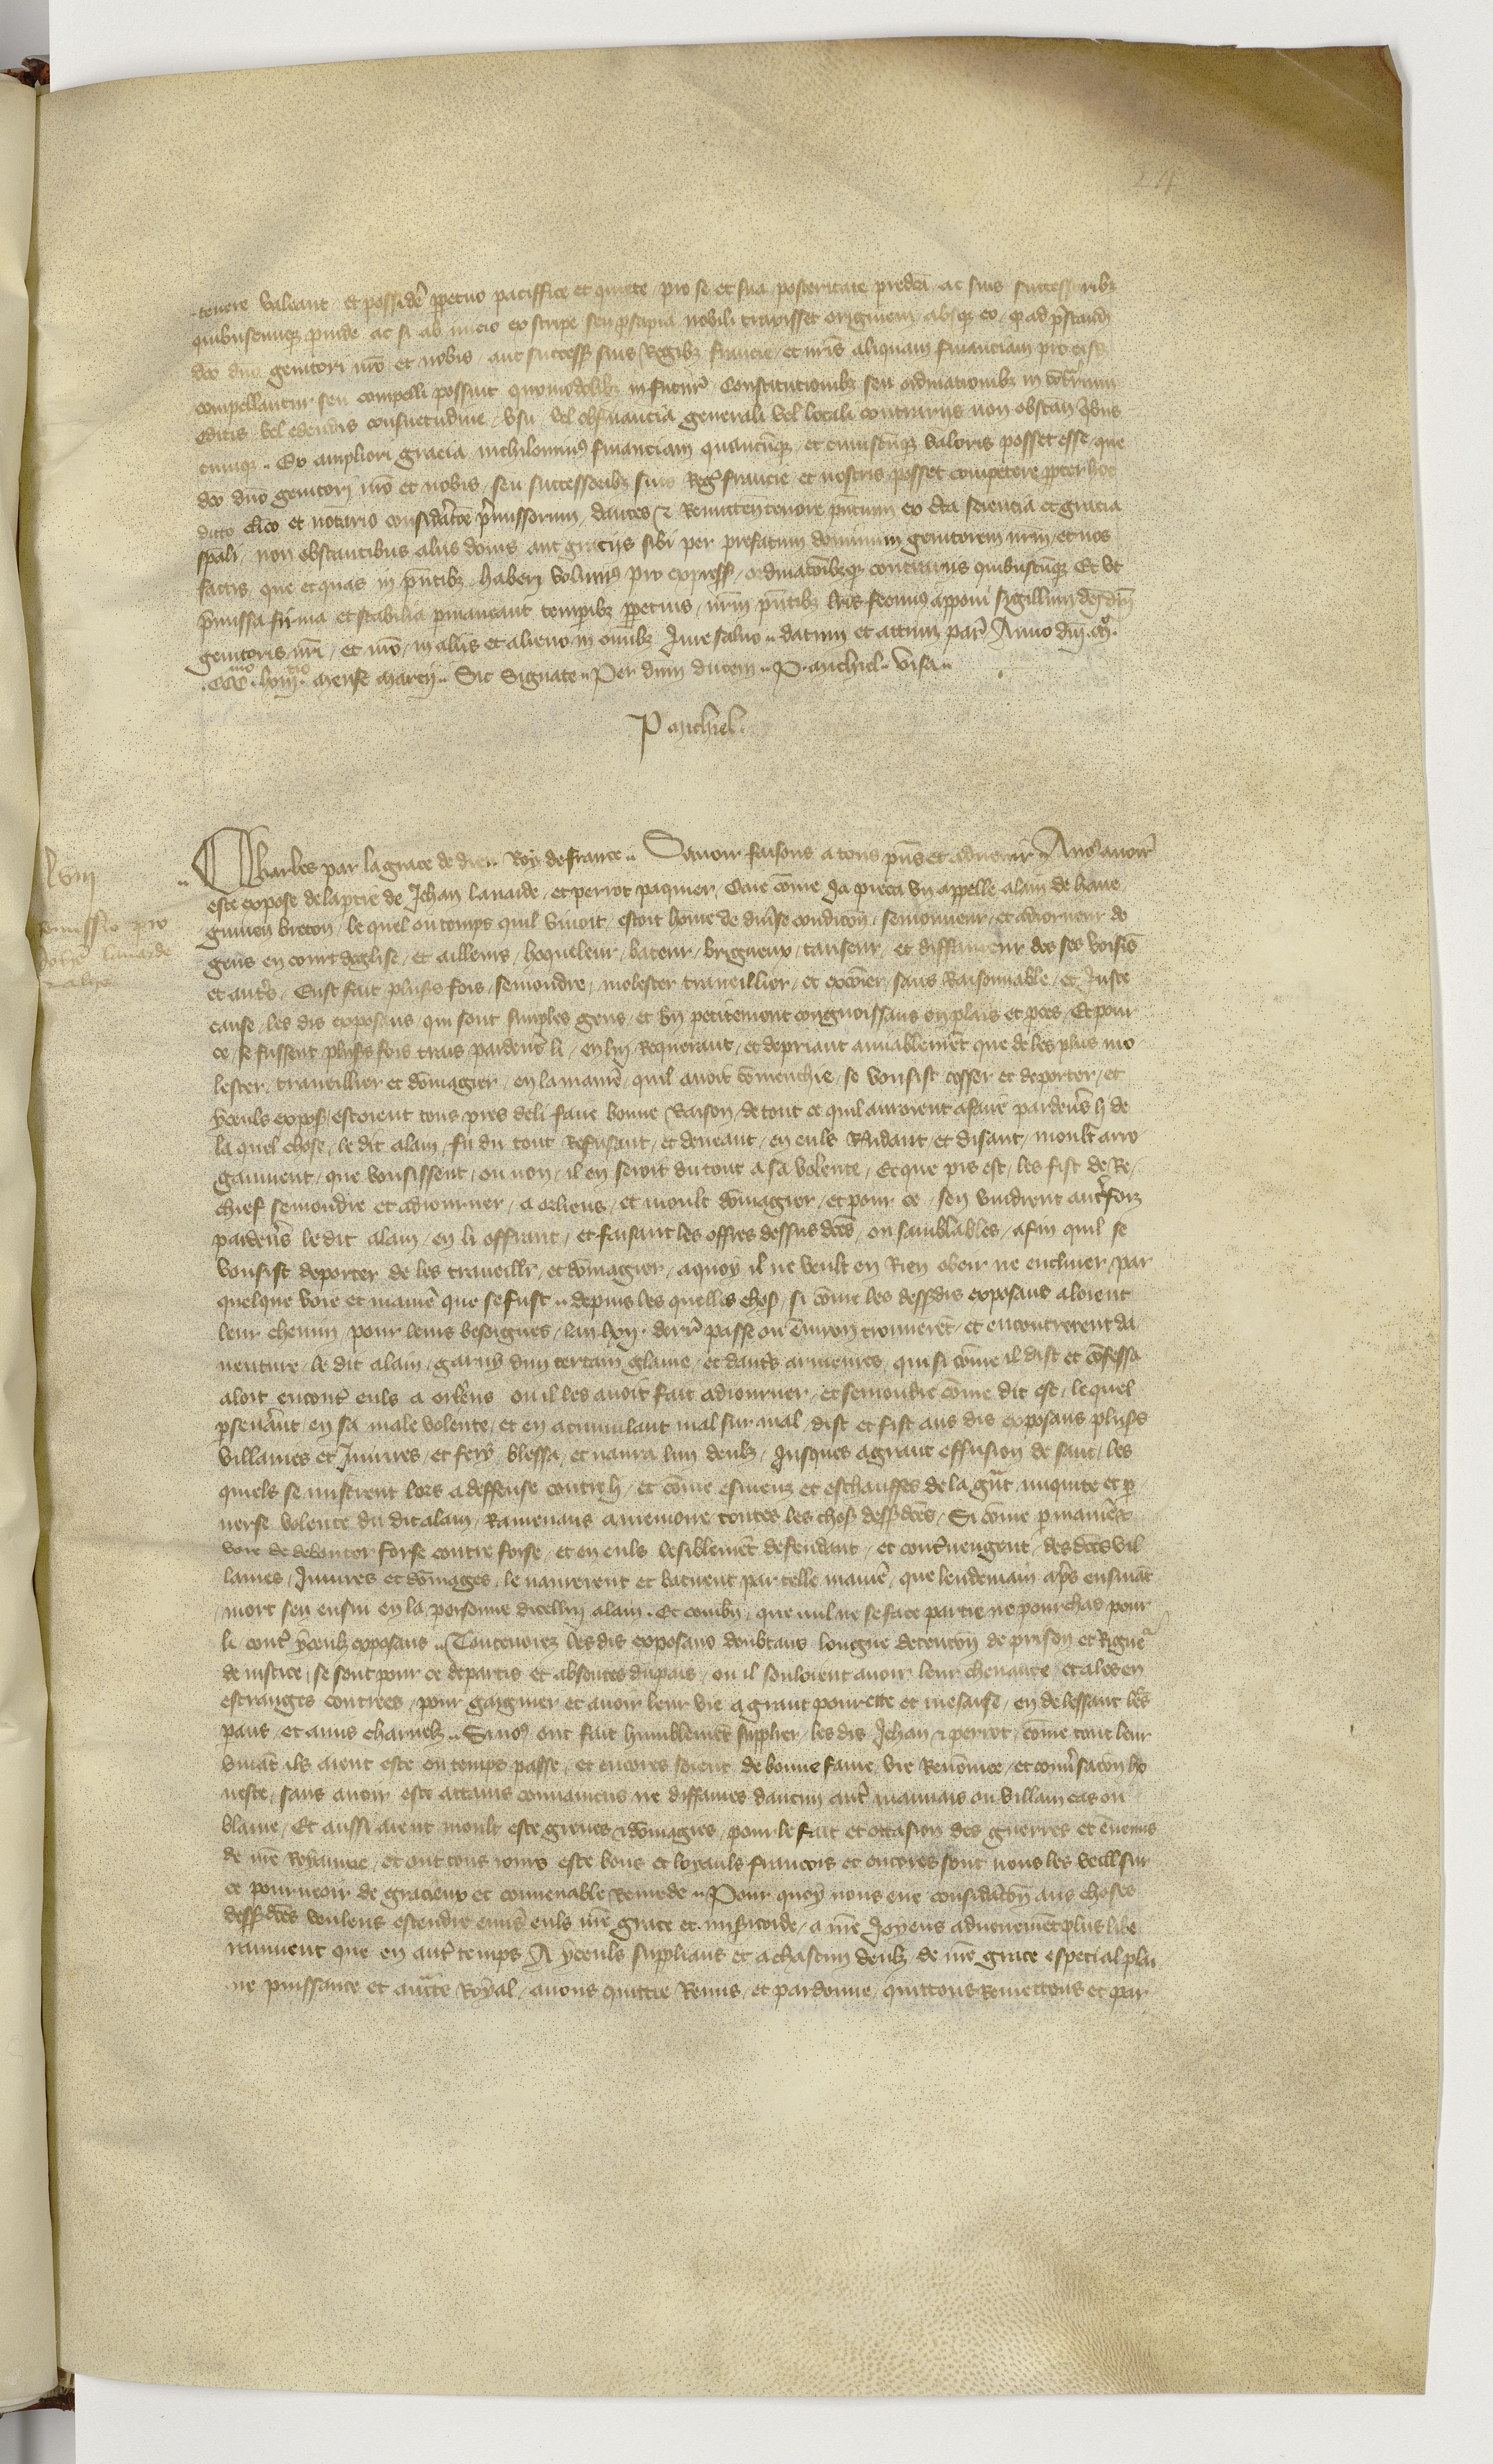 24
tenere valeant et possidere perpetuo pacifice et quiete pro se et sua posteritate predicta ac suis successoribz
quibuscumque proinde ac si ab inicio ex stirpe seu prosapia nobili traxisset originem absque eo quod ad prestand
dco dno genitori nro et nobis aut success suis Regibz francie et nris aliquam financiam pro eisd
compellantur seu compelli possint quomodolibz in futur Constitutionibz seu ordinationibz in contrarium
editis vel edendis consuetudine usu vel observancia generali vel locali contrariis non obstan quibus
cumque Ex ampliori gracia nichilominus financiam quamcumque et cuiuscumque valoris posset esse que
dco dno genitori nro et nobis seu successoribz suis Reg francie et nostris posset competere propter hoc
dicto clico et notario consideratione premissorum dantes et Remitten tenore presentium ex certa sciencia et gracia
spali non obstantibus aliis donis aut graciis sibi per prefatum dominum genitorem nrm et nos
factis que et quas in pntibz haberi volumus pro express ordinationibzque contrariis quibuscumque Et ut
premissa firma et stabilia permaneant temporibz perpetuis nrm pntibz lris fecimus apponi sigillum
genitoris nri et nro in aliis et alieno in omibz Jure salvo datum et actum par Anno dni mo
CCCmo lxiiicio mense marcii Sic Signate Per dnm ducem P. michiel visa
P michiel
lviii
Remissio pro
Johe lavarde
et alio
Charles par la grace de dieu Roy de france Savoir faisons a tous pns et advenir A nos avoir
este expose de la partie de Jehan lavarde et perrot paquier Que come Ja pieca un appelle alain de haue
guinen breton le quel ou temps quil vivoit estoit home de diverse condicon semonneur et adiorneur de
gens en court deglise et ailleurs hoqueleur bateur brigueux tanseur et diffameur des ses voisins
et autres Eust fait plusrs fois semondre molester traveillier et excomier sans Raisonnable et Juste
cause les dis exposans qui sont simples gens et bn petitement congnoissans en plais et proces Et pour
ce se fussent plusrs fois trais pardevers li en luy Requerant et depriant amiablement que de les plus mo
lester traveillier et domagier en la maniere quil avoit comenchie se voulsist cesser et deporter et
yceuls expos estoient tous pres de li faire bonne Raison de tout ce quil auroient afaire pardevers li de
la quel chose le dit alain fu du tout Refusant et deneant en euls Rudant et disant moult arro
gaument que vousissent ou non il en seroit du tout a sa volente Et que pis est les fist de Re
chief semondre et adiourner a orliens et moult domagier et pour ce sen vindrent autrefoiz
pardevers le dit alain en li offrant et faisant les offres dessus dces ou samblables afin quil se
vousist deporter de les traveillr et domagier aquoy il ne veult en Rien obeir ne encliner par
quelque voie et maniere que se fust depuis les quelles choses si come les dessdis exposans aloient
leur chemin pour leurs besoignes lan lxii derr passe ou environ trouverent et encontrerent da
venture le dit alain garny dun certain glaive et dautres armeures qui si come il dist et confessa
aloit encontre euls a orlens ou il les avoit fait adiourner et semondre come dit est lequel
perseverant en sa male volente et en acumulant mal sur mal dist et fist aus dis exposans plusrs
villanies et Jniures et fery blessa et navra lun deulz Jusques a grant effusion de sanc les
quiels se mistrent lors a deffense contre li et come esmeuz et eschauffes de la grant iniquite et per
verse volente du dit alain Ramenans a memoire toutes les choses dessdces Si come par maniere
voie de debouter force contre force et en euls lesiblement defendant et contrevengent des dces vil
lanies Jniures et domages le navrerent et batirent par telle maniere que lendemain apres ensuivant
mort sen ensui en la personne dicellui alain Et combn que nul ne se face partie ne pourchas pour
li contre yceulz exposans Toutevoiez les dis exposans doubtans longue detencon de prison et Rigueur
de iustice se sont pour ce departis et absentes du pais ou il souloient avoir leur chevance et ales en
estranges contrees pour gaignier et avoir leur vie a grant povrete et mesaise en delessant leurs
pans et amis charnelz Si nos ont fait humblement supplier les dis Jehan et perrot come tout leur
vivant ils aient este ou temps passe et encores soient de bonne fame vie Renomee et conversacon ho
neste sans avoir este attains convaincus ne diffames daucun autre mauvais ou villain cas ou
blame Et aussi aient moult este greves et domagies pour le fait et occasion des guerres et ennemis
de nre Royaume et ont tous iours este bons et loyauls francois et encores sont nous leur veillsur
ce pourveoir de gracieux et convenable Remede Pour quoy nous eue consideracon aus choses
dessdces voulens estendre envers euls nre grace et misericorde a nre Joyeus advenement plus libe
raument que en autre temps A yceuls supplians et a chascun deulz de nre grace especial plai
ne puissance et auctte Royal avons quittie Remis et pardonne quittons Remettons et par